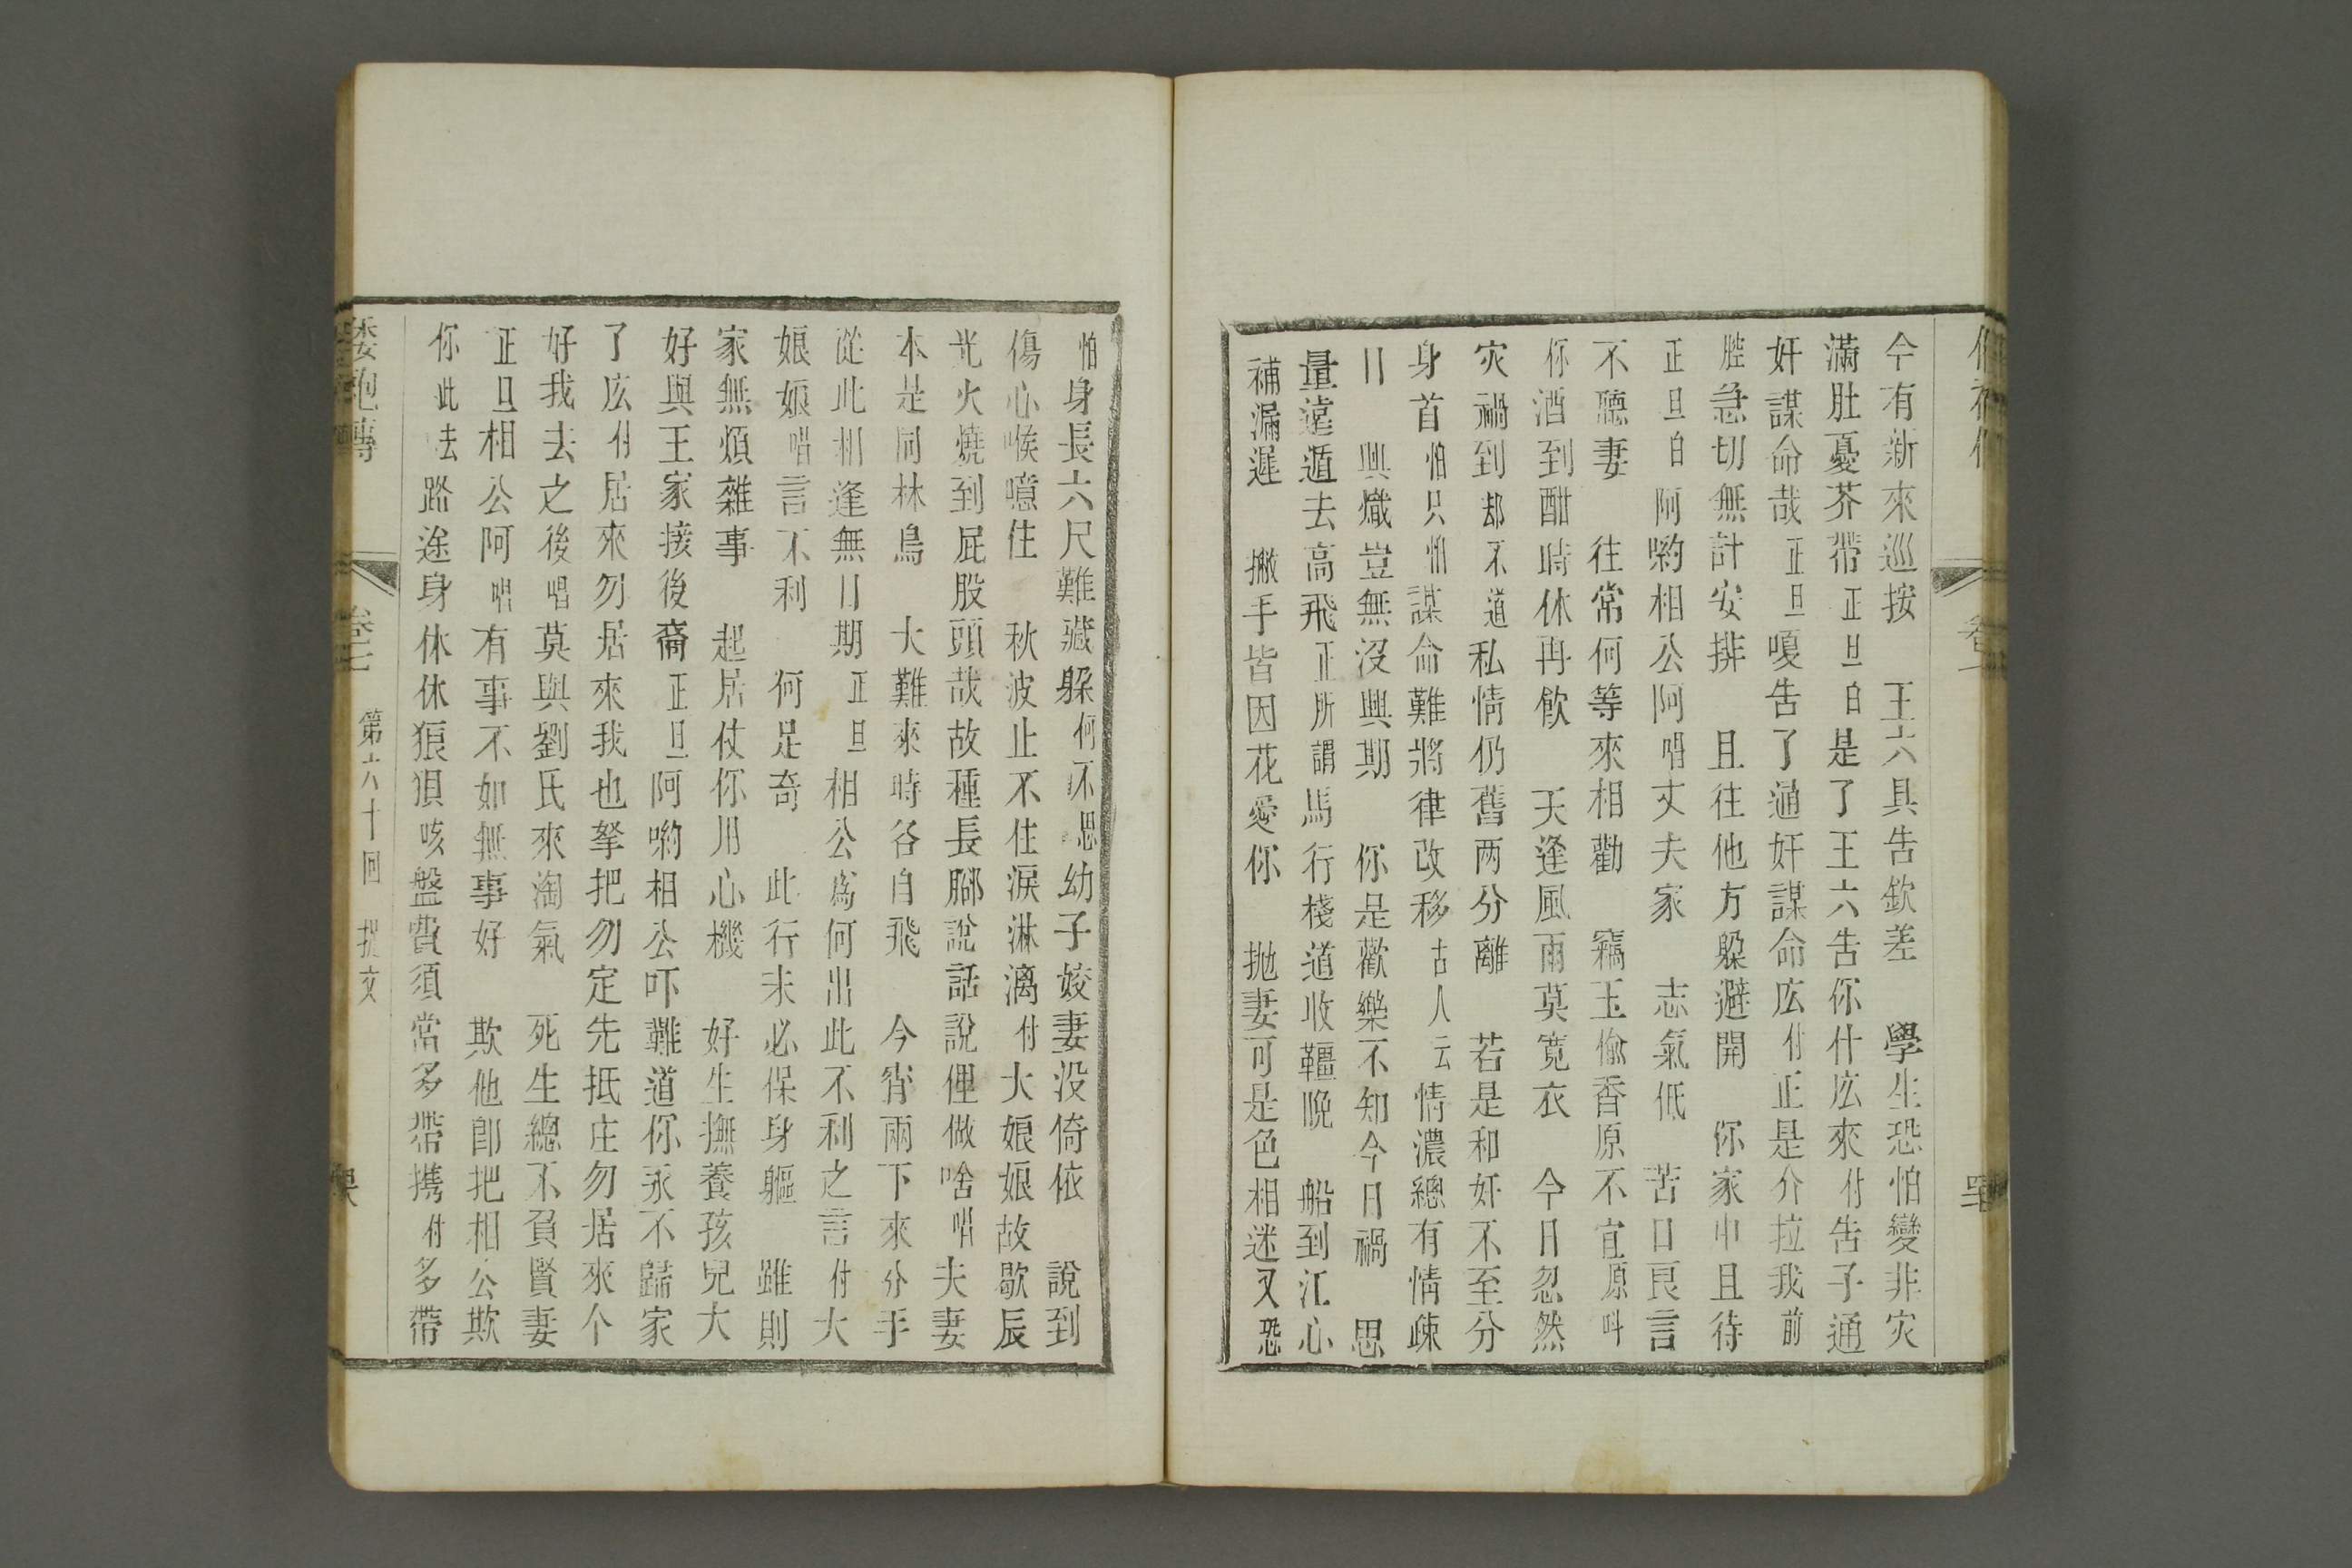 今有新來巡按　王六具告欽差　學生恐怕變非灾
滿肚憂芥帶正旦白是了王六告你什庅來付告子通
奸謀命哉正旦嗄告了通奸謀命庅付正是介拉我前
膛急切無計安排　且往他方躱避開　你家中且待
正旦白阿喲相公阿唱丈夫家　志氣低　苦口良言
不聽妻　往常何等來相勸　竊玉偸香原不宜原叫
你酒到酣時休再飲　天逢風雨莫寛衣　今日忽然
灾禍到却不道私情仍舊两分離　若是和奸不至分
身首怕只怕謀命難將律改移古人云情濃總有情疎
日　興熾豈無沒興期　你是歡樂不知今日禍　思
量遠遁去高飛正所謂馬行棧道收韁晚　船到江心
補漏遲　撇手皆因花愛你　抛妻可是色相迷又恐
怕身長六尺難藏躲何不思幼子姣妻没倚依　說到
傷心喉噫住　秋波止不住淚淋漓付大娘娘故歇辰
光火燒到屁股頭哉故種長腳說話說俚做啥唱夫妻
本是同林鳥　大難來時各自飛　今宵兩下來分手
從此相逢無日期正旦相公爲何出此不利之言付大
娘娘唱言不利　何足奇　此行未必保身軀　雖則
家無煩雜事　起居仗你用心機　好生撫養孩兒大
好與王家接後裔正旦阿喲相公吓難道你永不歸家
了庅付居來勿居來我也拏把勿定先抵庄勿居來个
好我去之後唱莫與劉氏來淘氣　死生總不負賢妻
正旦相公阿唱有事不如無事好　欺他郎把相公欺
你此去路途身休休狼狽咳盤費須當多帶携付多帶
倭袍傳　卷十二　第六十回　捉文